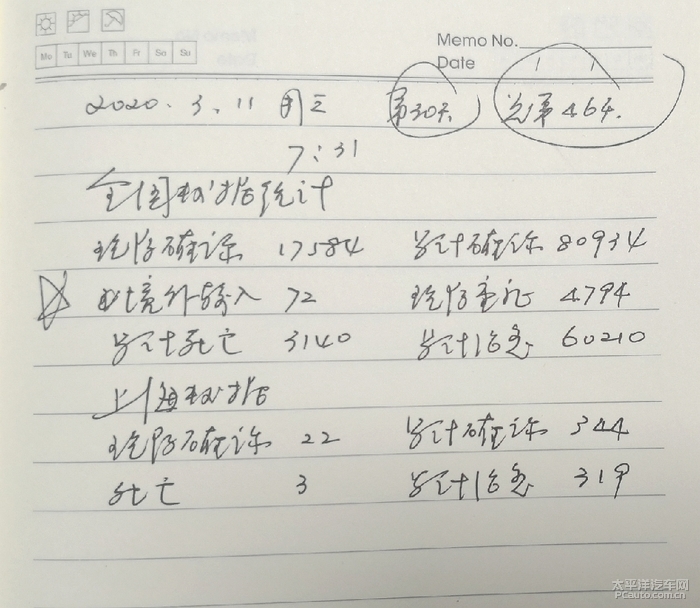 Memo No.
Mo Tu We Th Fr Sa Su
Date
2020.3.11 周三 第30天 总第464.
7:31
全国数据统计
现存确诊 17584 累计确诊 80934
☆ 境外输入 72 现存重症 4794
累计死亡 3140 累计治愈 60210
上海数据
现存确诊 22 累计确诊 344
死亡 3 累计治愈 319
太平洋汽车网
PCauto.com.cn